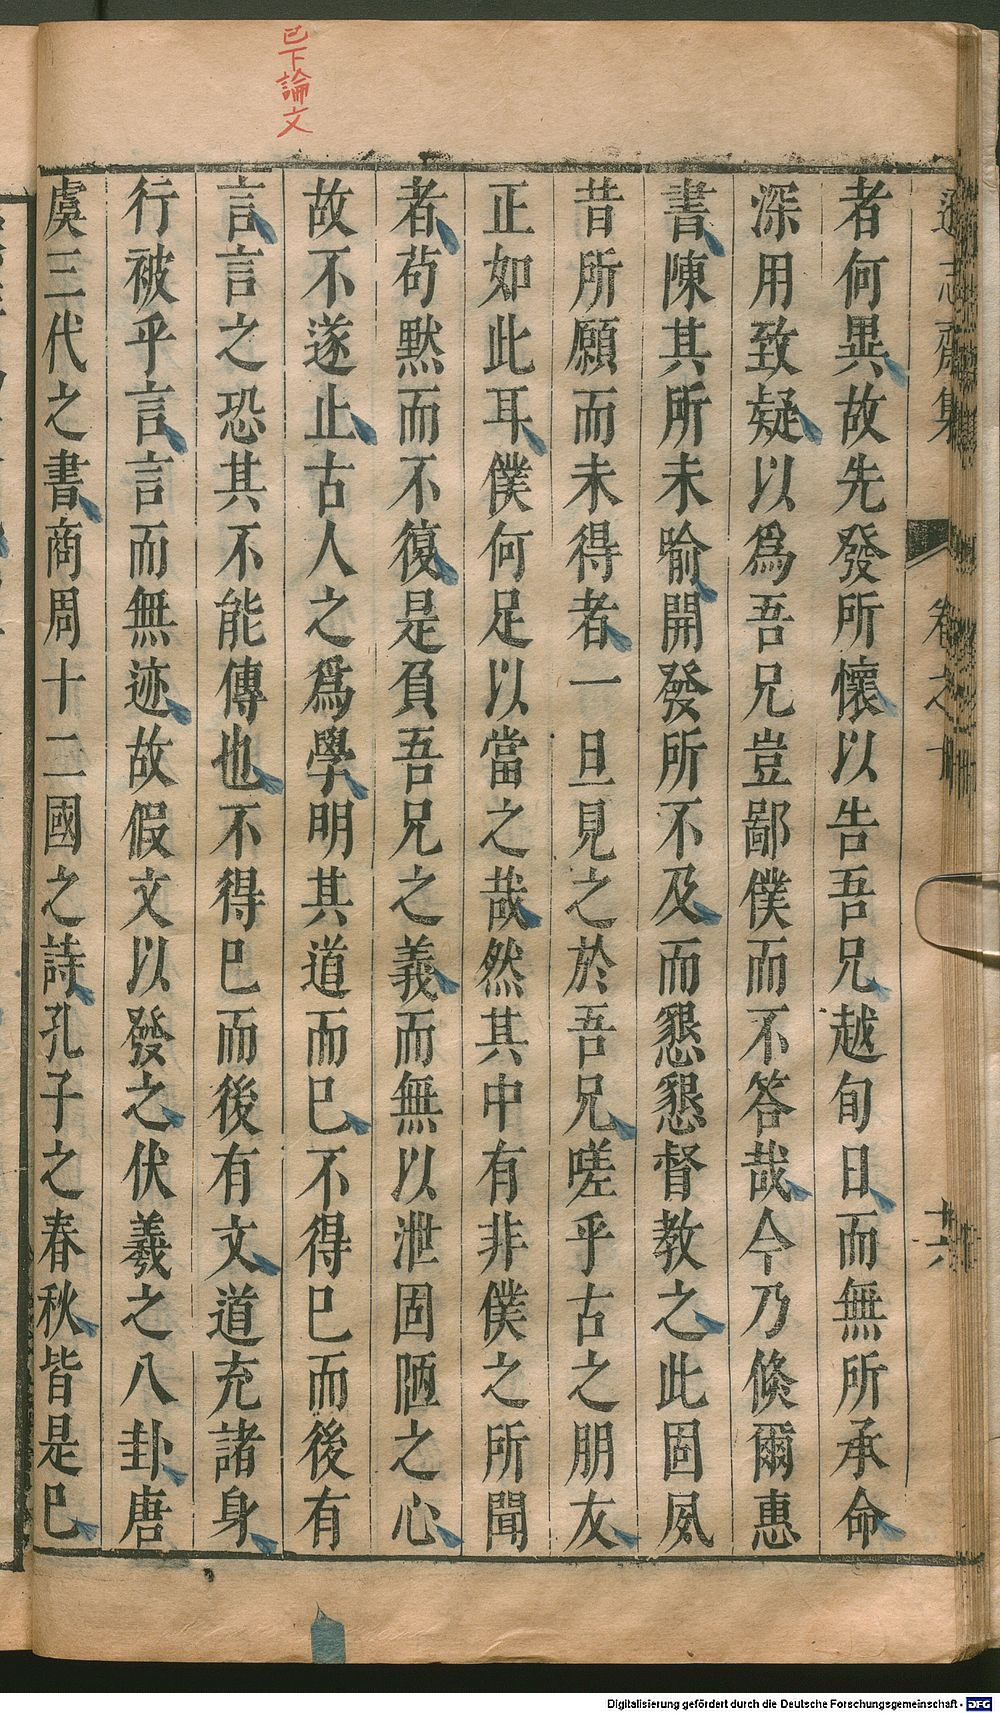 已下論文
遜志齋集
卷之十
十六
者何異故先發所懷以告吾兄越旬日而無所承命
深用致疑以爲吾兄豈鄙僕而不答哉今乃倐爾惠
書陳其所未喻開發所不及而懇懇督教之此固夙
昔所願而未得者一旦見之於吾兄嗟乎古之朋友
正如此耳僕何足以當之哉然其中有非僕之所聞
者苟默而不復是負吾兄之義而無以泄固陋之心
故不遂止古人之爲學明其道而已不得已而後有
言言之恐其不能傳也不得已而後有文道充諸身
行被乎言言而無迹故假文以發之伏羲之八卦唐
虞三代之書商周十二國之詩孔子之春秋皆是已
Digitalisierung gefördert durch die Deutsche Forschungsgemeinschaft - DFG